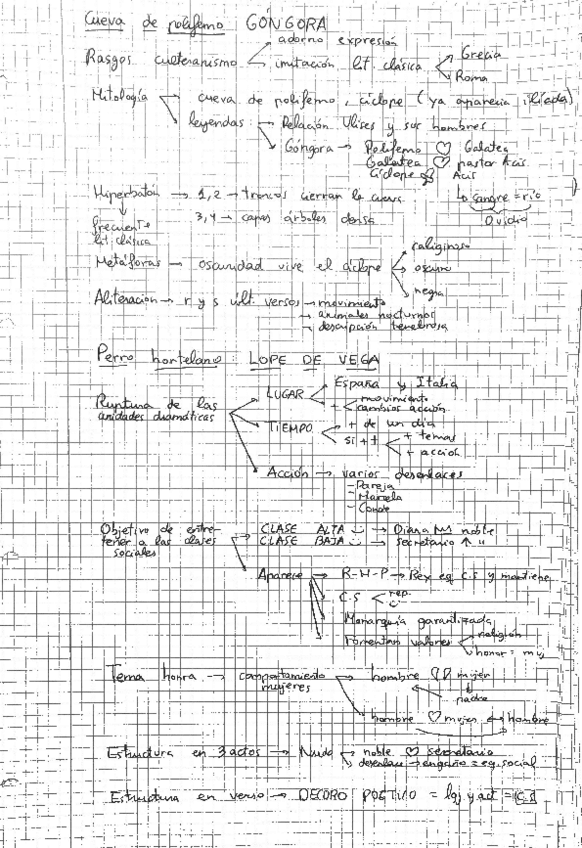 Cueva de polifemo GÓNGORA
adorno expresión
Rasgos culteranismo imitación lit clásica Grecia
Roma
Mitología cueva de polifemo, cíclope (ya aparecía ilíada)
leyendas Relación Ulises y sus hombres
Góngora → Polifemo ♡ Galatea
Galatea ♡ pastor Acis
Cíclope Acis
Hiperbaton → 1,2 → troncos cierran la cueva
La sangre = río
Ovidio
frecuente 3,4 → capas árboles densa
lit clásica
caliginoso
Metáforas → oscuridad vive el cíclope → oscuro
negra
Aliteración → r y s últ. versos → movimiento
→ animales nocturnos
→ descripción tenebrosa
Perro hortelano: LOPE DE VEGA
LUGAR España y Italia
+ movimiento
cambios acción
Ruptura de las
unidades dramáticas
TIEMPO + de un día
si + t + temas
+ acción
Acción → varios desenlaces
- Pareja
- Marcela
- Conde
Objetivo de entre-
tener a las clases
sociales
CLASE ALTA → Diana noble
CLASE BAJA → secretario ↑ "
Aparece → R-H-P → Rey eq. C.S y mantiene
C.S rep.
Monarquía garantizada
Fomentan valores religión
honor = muj
Tema honra → comportamiento hombre mujer
mujeres
padre
hombre ♡ mujer hombre
Estructura en 3 actos → Nudo noble ♡ secretario
desenlace → engaño = eq. social
Estructura en verso → DECORO POÉTICO = lgj y act = C.S